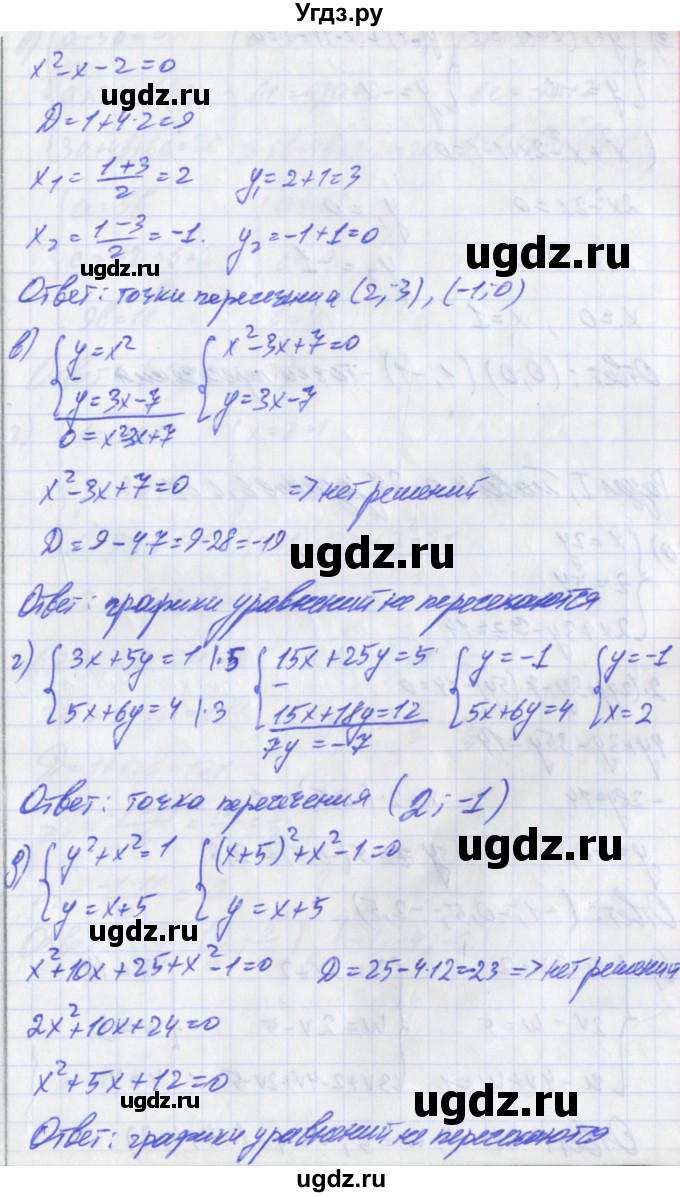 Угдз.ру
x²-x-2=0
ugdz.ru
D=1+4·2=9
x₁=(1+3)/2=2 y₁=2+1=3
x₂=(1-3)/2=-1. y₂=-1+1=0
ugdz.ru
Ответ: точки пересечения (2;3), (-1;0)
в) {y=x² {x²-3x+7=0
ugdz.ru
- y=3x-7 y=3x-7
0=x²-3x+7
x²-3x+7=0 => нет решений
D=9-4·7=9-28=-19
ugdz.ru
Ответ: графики уравнений не пересекаются
г) {3x+5y=1 |·5 {15x+25y=5 {y=-1 {y=-1
5x+6y=4 |·3 - 15x+18y=12 5x+6y=4 x=2
7y=-7
ugdz.ru
Ответ: точка пересечения (2;-1)
ugdz.ru
д) {y²+x²=1 {(x+5)²+x²-1=0
y=x+5 y=x+5
ugdz.ru
x²+10x+25+x²-1=0 D=25-4·12=-23 => нет решений
2x²+10x+24=0
x²+5x+12=0
ugdz.ru
ugdz.ru
Ответ: графики уравнений не пересекаются
ugdz.ru